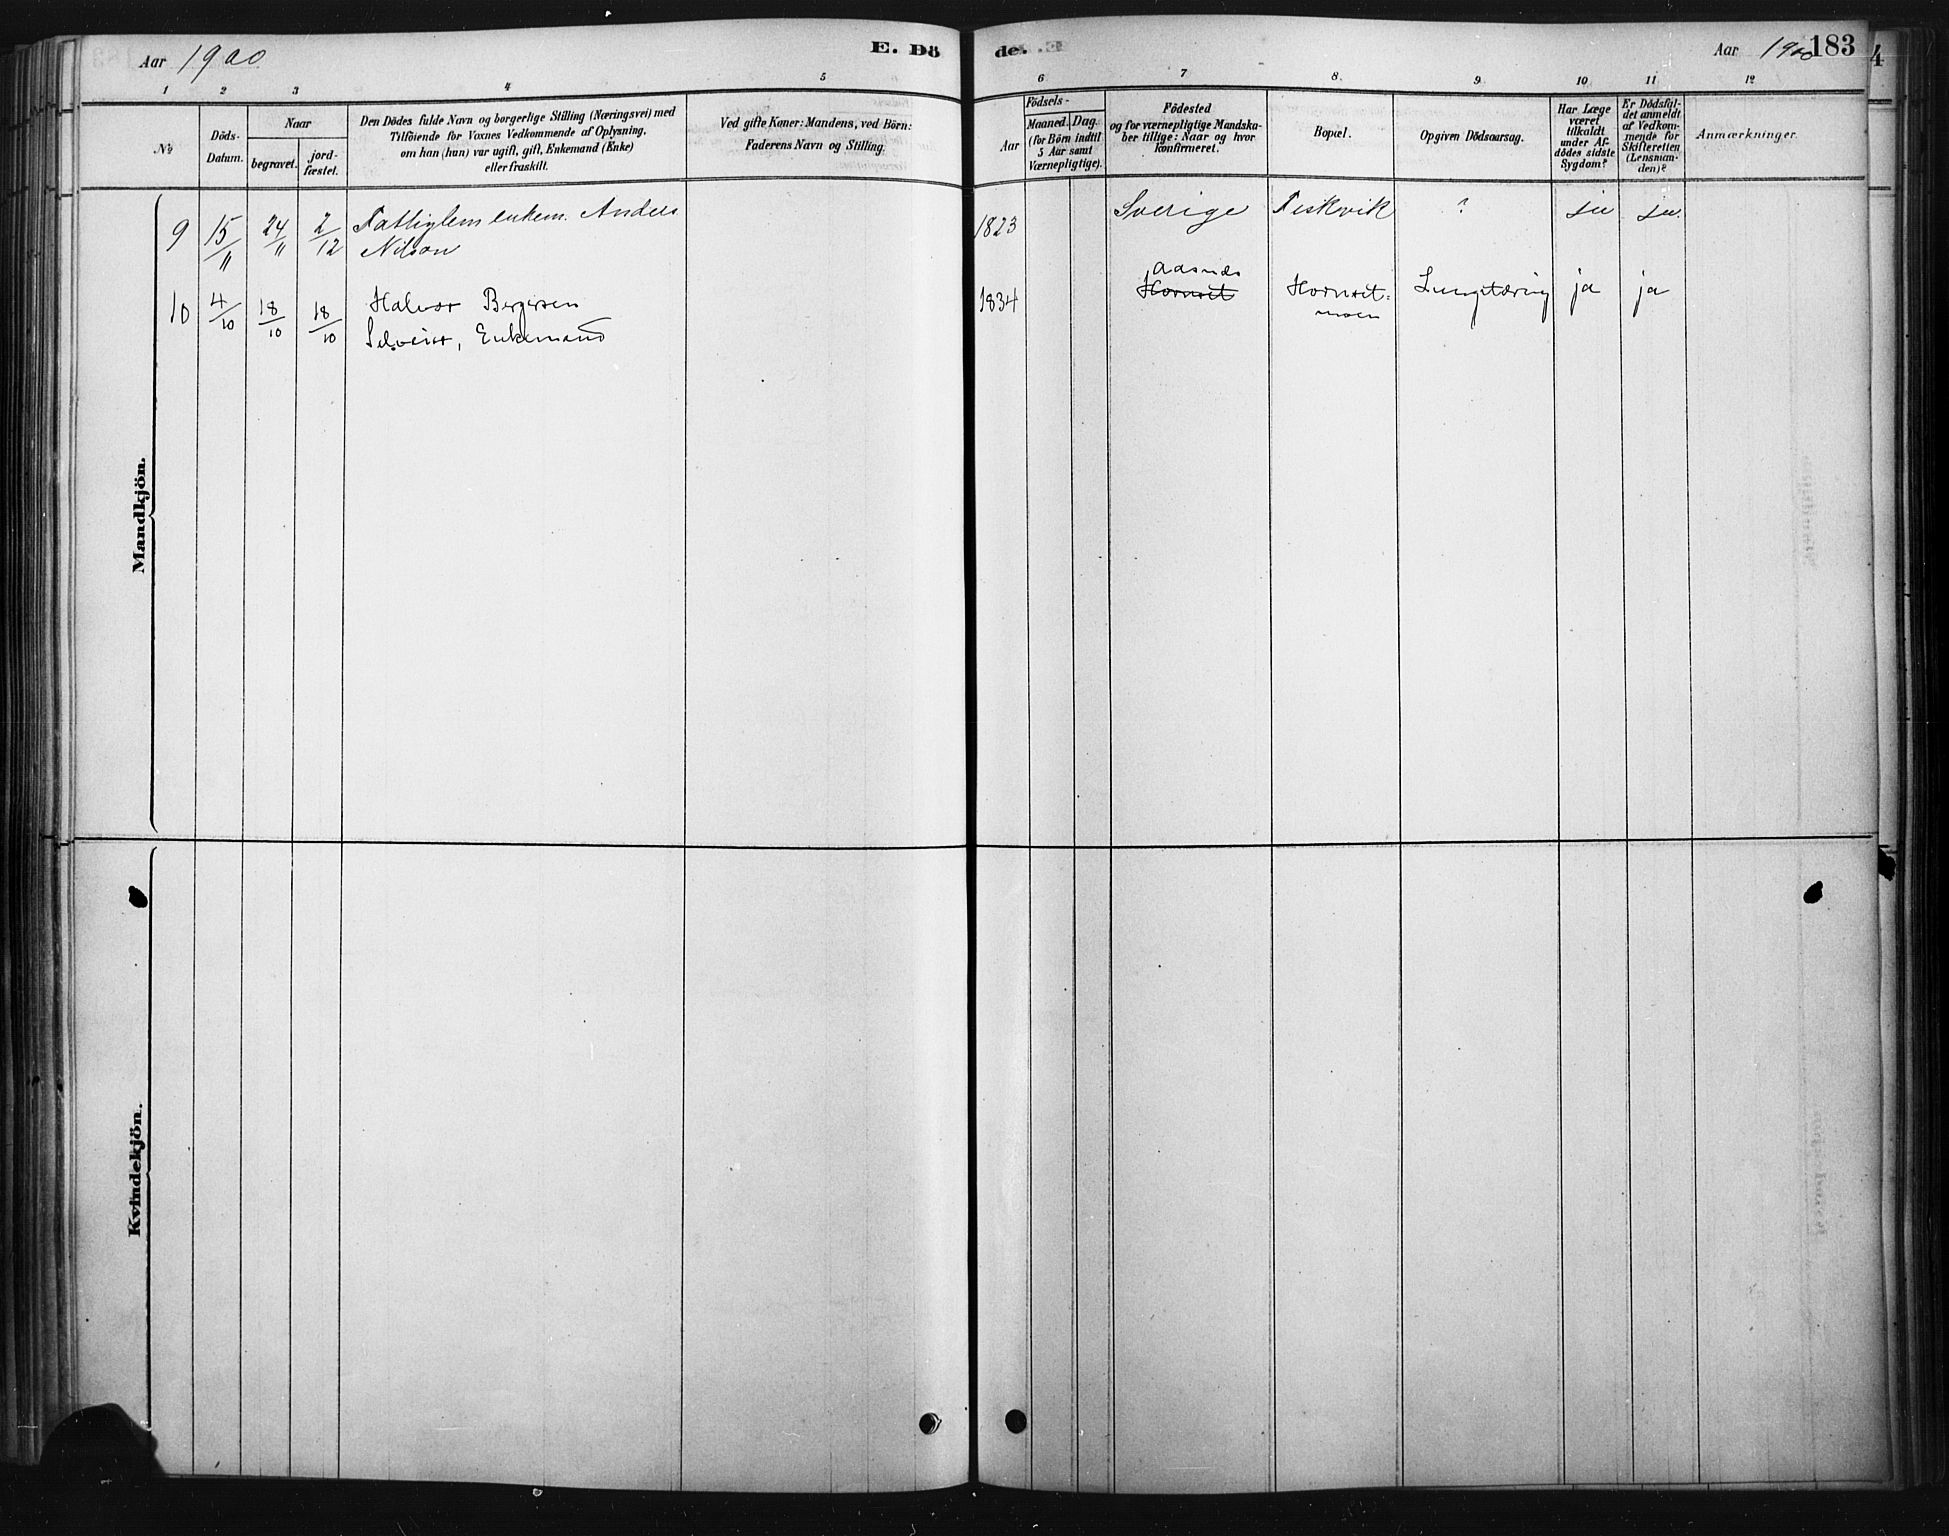 Aar 1900 E. Dö de. Aar 1900 183
1 2 3 4 5 6 7 8. 9. 10 11 12
№
Döds-Datum.
Naar
begravet.
jord-
fæstet.
Den Dödes fulde Navn og borgerlige Stilling (Næringsvei) med
Tilföiende for Voxnes Vedkommende af Oplysning,
om han (hun) var ugift, gift, Enkemand (Enke)
eller fraskilt.
Ved gifte Koner: Mandens, ved Börn:
Faderens Navn og Stilling.
Födsels-
Aar
Maaned. Dag.
(for Börn indtil
5 Aar samt
Værnepligtige).
Födested
og for værnepligtige Mandska-
ber tillige: Naar og hvor
konfirmeret.
Bopæl.
Opgiven Dödsaarsag.
Har Læge
været
tilkaldt
under Af-
dödes sidste
Sygdom?
Er Dödsfal-
det anmeldt
af Vedkom-
mende for
Skifteretten
(Lensman-
den)?
Anmærkninger.
Mandkjön.
9 15/11 24/11 2/12 Fattiglem enkem. Anders 1823 Sverige Fiskvik ? ja ja.
Nilson
Aasnæs
10 4/10 18/10 18/10 Halvor Bergersen 1834 Hornset Hornset- Lungetæring ja ja
moen
Enkemand
Kvindekjön.